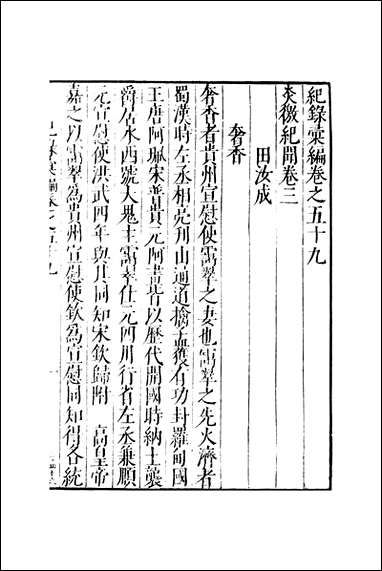 紀錄彙編卷之五十九
炎徼紀聞卷三
田汝成
奢香
奢香者貴州宣慰使靄翠之妻也靄翠之先火濟者
蜀漢時左丞相亮刋山通道擒孟獲有功封羅甸國
王唐阿珮宋普貴元阿畫皆以歷代開國時納土襲
爵居水西號大鬼主靄翠仕元四川行省左丞兼順
元宣慰使洪武四年與其同知宋欽歸附 高皇帝
嘉之以靄翠為貴州宣慰使欽為宣慰同知得各統